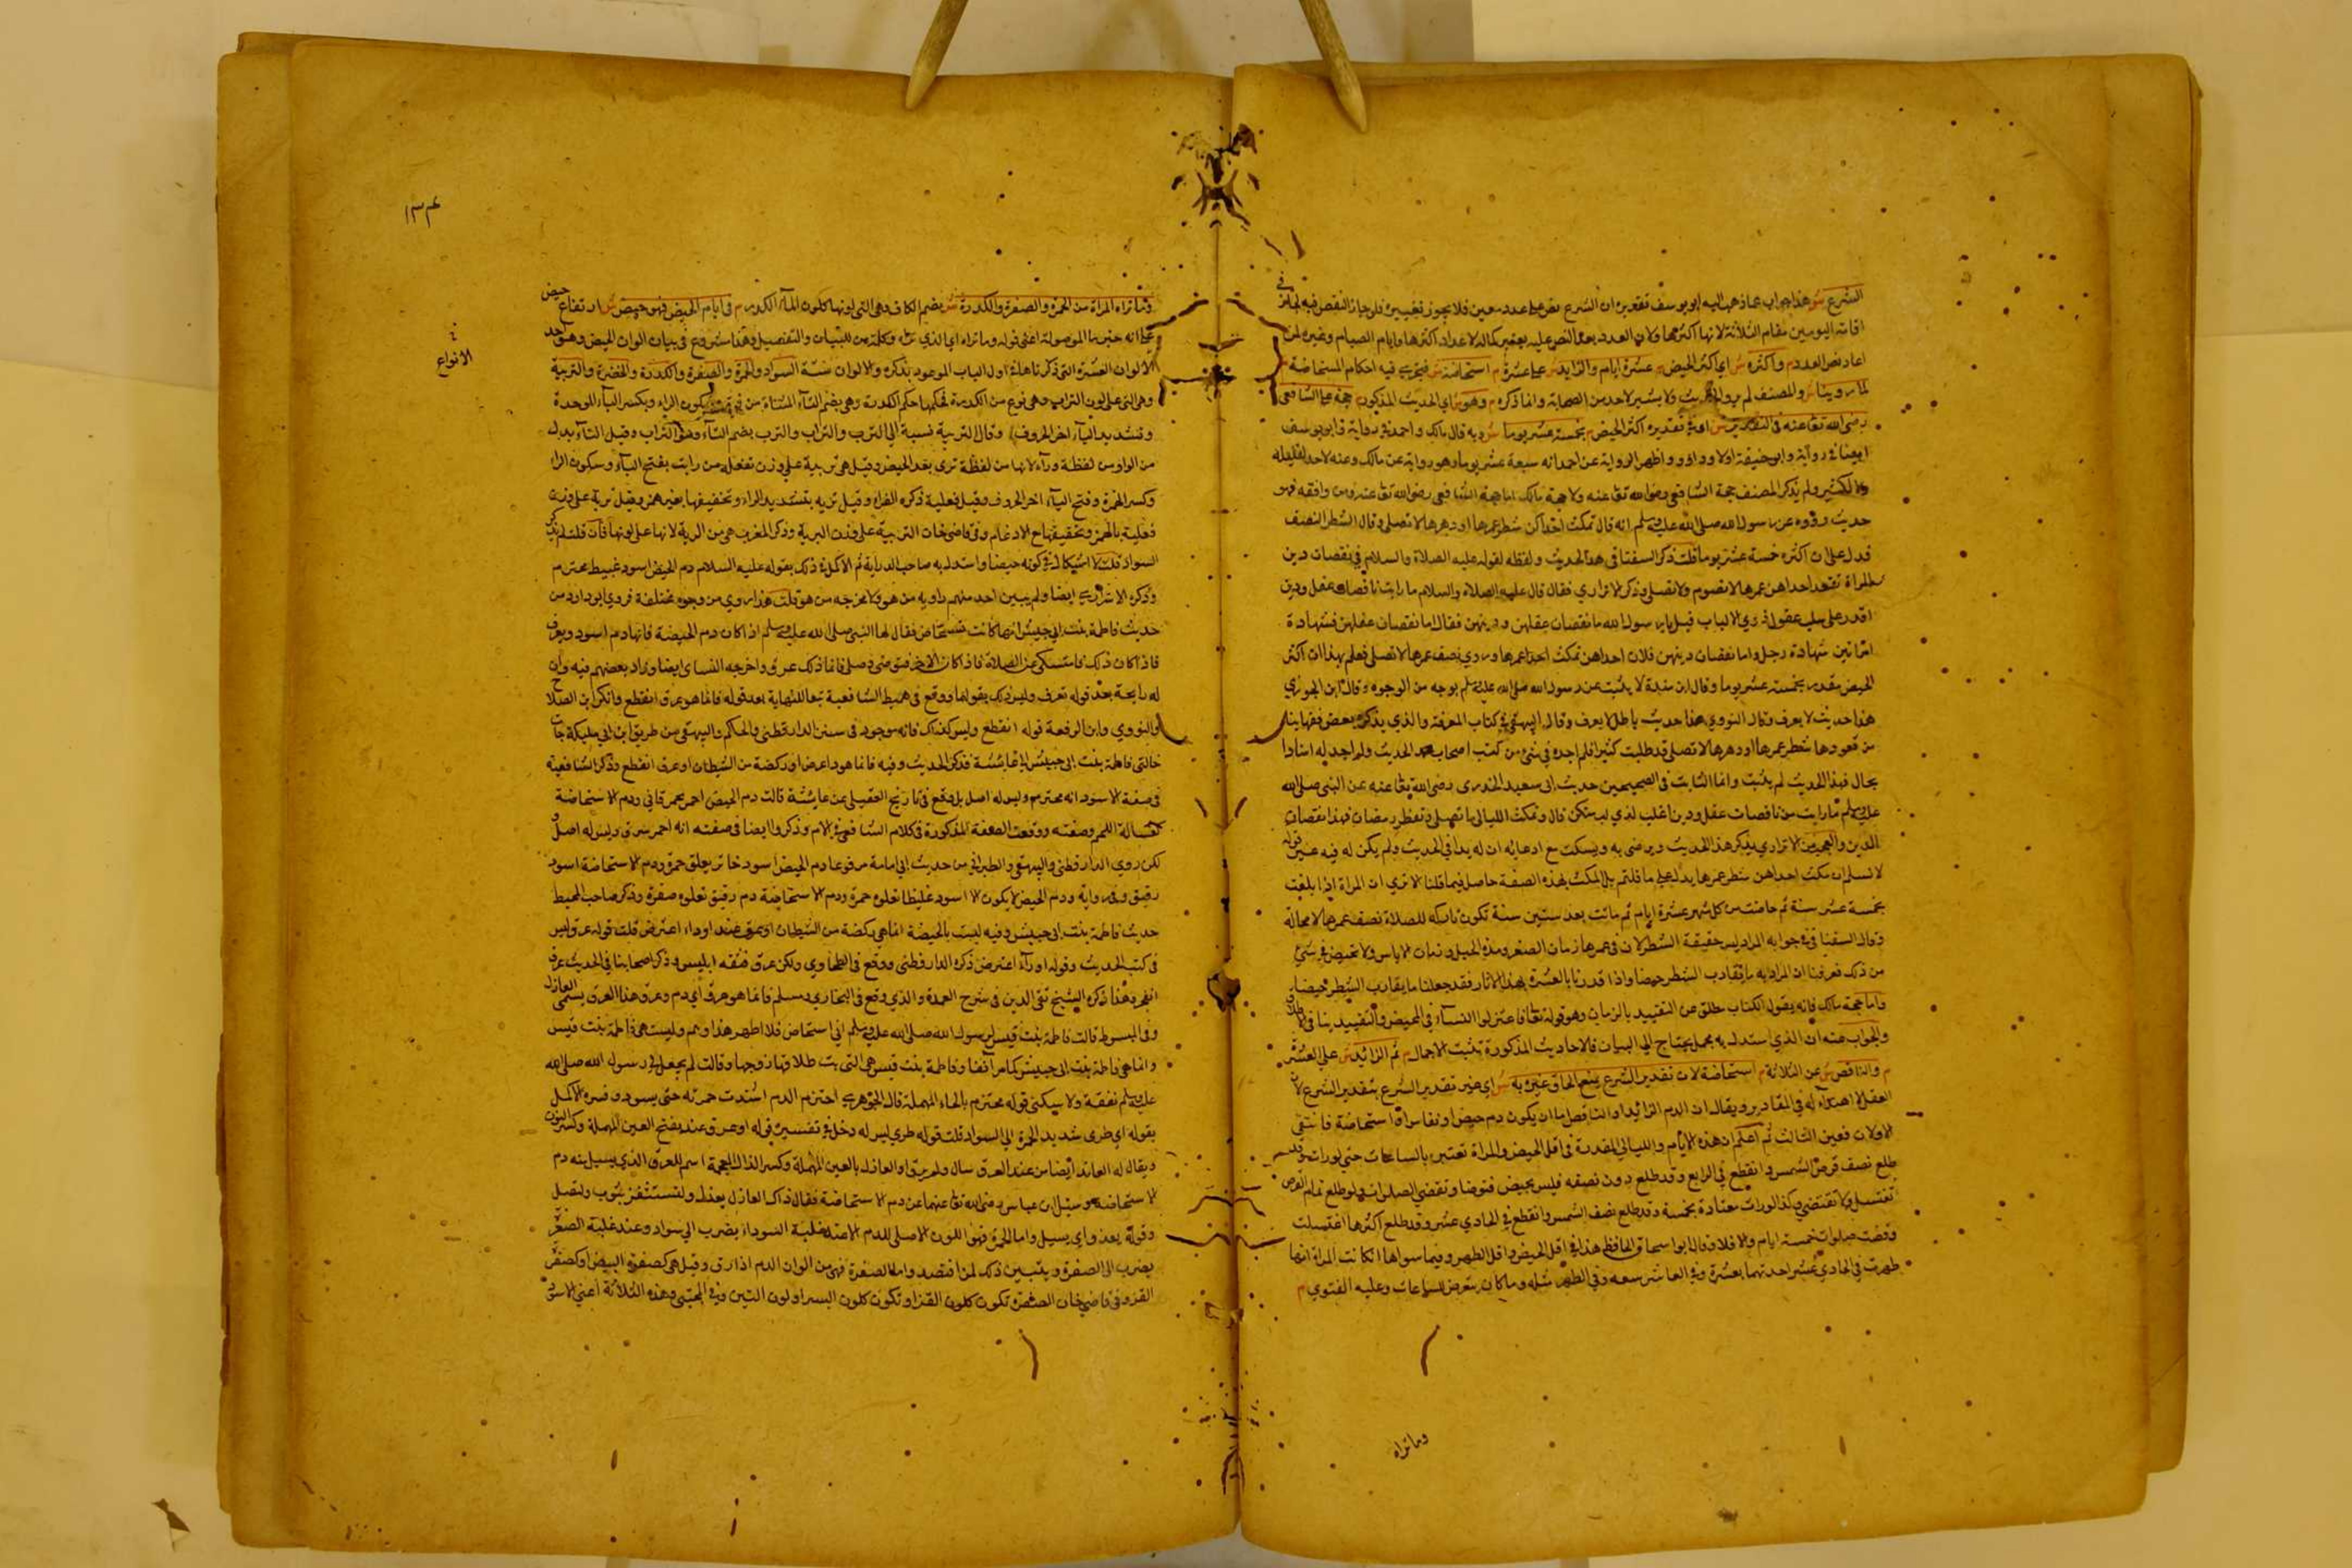 الشرع ش هذا جواب عما ذهب اليه ابو يوسف تقعيره ان الشرع نص على عدد معين فلا يجوز تغييره فلو جاز النقص فيه لجاز في
اقامة اليومين مقام الثلاثة لانها اكثرها ولان العدد
اعاد نص العدد م واكثره ش اي اكثر الحيض م عشرة ايام والزايد ش على عشرة م استحاضة ش فيجري فيه احكام المستحاضة م
لما روينا ش والمصنف لم يرو الحديث ولا بنسبه لاحد من الصحابة وانما ذكره م وهو ش اي الحديث المذكور م حجة على الشافعي
رضي الله تعا عنه في التقدير ش اي في تقديره اكثر الحيض م بخمسة عشر يوما ش وبه قال مالك واحمد في رواية وابو يوسف
ايضا في رواية وابو حنيفة اولا وداود واظهر الرواية عن احمد انه سبعة عشر يوما وهو رواية عن مالك وعنه لا حد لقليله
ولا لكثيره ولم يذكر المصنف حجة الشافعي رضي الله تعا عنه ولا حجة مالك اما حجة الشافعي رضي الله تعا عنه ومن وافقه فهو
حديث رووه عن رسول الله صلى الله عليه وسلم انه قال تمكث احداكن شطر عمرها او دهرها لا تصلي وقال الشطر النصف
فدل على ان اكثره خمسة عشر يوما قلت ذكر السغنا في هذا الحديث ولفظه لقوله عليه الصلاة والسلام في نقصان دين
المراة تقعد احداهن عمرها لا تصوم ولا تصلي وذكر الاترازي فقال قال عليه الصلاة والسلام ما رايت ناقصات عقل ودين
اقدر على سلب عقول ذوي الالباب قيل يا رسول الله ما نقصان عقلهن ودينهن فقال اما نقصان عقلهن فشهادة
امراتين بشهادة رجل واما نقصان دينهن فلان احداهن تمكث
الحيض مقدر بخمسة عشر يوما وقال ابن مندة لا يثبت عن رسول الله صلى الله عليه وسلم بوجه من الوجوه وقال ابن الجوزي
هذا حديث لا يعرف وقال النووي هذا حديث باطل لا يعرف وقال البيهقي في كتاب المعرفة والذي يذكره بعض فقهاينا
من قعودها شطر عمرها او دهرها لا تصلي قد طلبت كثيرا فلم اجده في شيء من كتب اصحاب الحديث ولم اجد له اسنادا
بحال فهذا الحديث لم يثبت وانما الثابت في الصحيحين حديث ابي سعيد الخدري رضي الله تعا عنه عن النبي صلى الله
عليه وسلم ما رايت من ناقصات عقل ودين اغلب لذي لب منكن قال وتمكث الليالي ما تصلي وتفطر رمضان فهذا نقصان
الدين والعجب من الاترازي يذكر هذا الحديث ويرضى به ويسكت مع ادعايه ان له يدا في الحديث ولم يكن له فيه غير قوله
لا نسلم ان مكث احداهن شطر عمرها يدل على ما قلتم بل المكث بهذه الصفة حاصل فيما قلنا الا تري ان المراة اذا بلغت
بخمسة عشر سنة ثم حاضت من كل شهر عشرة ايام ثم ماتت بعد ستين سنة تكون تاركة للصلاة نصف عمرها لا محالة
وقال السغنا في في جوابه المراد ليس حقيقة الشطر لان في عمرها زمان الصغر ومدة الحبل وزمان الاياس ولا تحيض في شيء
من ذلك فعرفنا ان المراد به ما يقارب الشطر حيضا واذا قدرنا بالعشرة بهذه الاثار فقد جعلنا ما يقارب الشطر حيضا
واما حجة مالك فانه يقول الكتاب مطلق عن التقييد بالزمان وهو قوله تعا فاعتزلوا النساء في المحيض والتقييد ينافي الاطلاق
والجواب عنه ان الذي استدل به مجمل يحتاج الى البيان فالاحاديث المذكورة بينت الاجمال م ثم الزايد ش على العشرة
م والناقص ش عن الثلاثة م استحاضة لان تقدير الشرع يمنع الحاق غيره به ش اي غير تقدير الشرع بتقدير الشرع لان
العقل لا اهتداء له في المقادير ويقال ان الدم الزائد او الناقص اما ان يكون دم حيض او نفاس او استحاضة فانتفى
الاولان فعين الثالث ثم اعلم ان هذه الايام والليالي المقدرة في اقل الحيض والمراة تعتبر بالساعات حتى لو رات وقد
طلع نصف قرص الشمس وانقطع في الرابع وقد طلع دون نصفه فليس بحيض فتوضا وتقضي الصلوات ولو طلع تمام القرص
تغتسل ولا تقضي وكذا لو رات معتادة بخمسة وقد طلع نصف الشمس وانقطع في الحادي عشر وقد طلع اكثرها اغتسلت
وقضت صلوات خمسة ايام والا فلا وقال ابو اسحاق الحافظ هذا في اقل الحيض واقل الطهر وفيما سواها اذا كانت المراة انها
طهرت في الحادي عشر احدتهما بعشرة وفي العاشر بتسعة وفي الطهر مثله وما كان يتعرض للساعات وعليه الفتوى م
وما تراه
١٣٤
وما تراه المراة من الحمرة والصفرة والكدرة ش بضم الكاف وهي التي لونها كلون الماء الكدر م في ايام الحيض فهو حيض ش ارتفاع حيض
على انه خبر ما الموصولة اعني قوله وما تراه اي الذي تراه وكلمة من للبيان والتفصيل وهذا شروع في بيان الوان الحيض وهو احد
الانواع
الالوان العشرة التي ذكرناها في اول الباب الموعود بذكره والالوان ستة السواد والحمرة والصفرة والكدرة والخضرة والتربية
وهي التي على لون التراب وهي نوع من الكدرة فحكمها حكم الكدرة وهي بضم التاء المثناة من فوق وسكون الراء وبكسر الباء الموحدة
وتشديد الياء اخر الحروف وقال التربية نسبة الى الترب والتراب والترب بضم التاء وهو التراب وقيل التاء بدل
من الواو من لفظة وراء لانها من لفظة تري بعد الحيض وقيل هي تربية على وزن تفعلة من رايت بفتح الياء وسكون الرا
وكسر الهمزة وفتح الياء اخر الحروف وقيل فعلية ذكره الفراء وقيل تريه بتشديد الراء وتخفيفها بغير همز وقيل تربة على وزن
فعلية بالهمز وتخفيفها مع الادغام وفي قاضي خان التربية على وزن البرية وذكر المغرب هي من الرية لانها على لونها فان قلت لم يذكر
السواد قلت لا اشكال في كونه حيضا واستدل به صاحب الدراية ثم الاكمل في ذلك بقوله عليه السلام دم الحيض اسود عبيط محتدم
وذكره الاترازي ايضا ولم يبين احد منهم راويه من هو ولا مخرجه من هو قلت هذا روي من وجوه مختلفة فروي ابو داود من
حديث فاطمة بنت ابي حبيش انها كانت تستحاض فقال لها النبي صلى الله عليه وسلم اذا كان دم الحيضة فانها دم اسود ويعرف
فاذا كان ذلك فامسكي عن الصلاة فاذا كان الاخر فتوضئي وصلي فانما ذلك عرق واخرجه النسائ ايضا وزاد بعضهم فيه وان
له رايحة بعد قوله تعرف وليس ذلك بقولها ووقع في وسيط الشافعية تبعا للنهاية بعد قوله فانما هو عرق انقطع وانكر ابن الصلاح
والنووي وابن الرفعة قوله انقطع وليس كذاك فانه موجود في سنن الدارقطني والحاكم والبيهقي من طريق ابن ابي مليكة جات
خالتي فاطمة بنت ابي حبيش الى عائشة فذكر الحديث وفيه فانما هو داء عرض او ركضة من الشيطان او عرق انقطع وذكر الشافعية
في صفة الاسود انه محتدم وليس له اصل بل وقع في تاريخ العقيلي عن عايشة قالت دم الحيض احمر بحراني ودم الاستحاضة
كغسالة اللحم وضعفه ووقعت الصفة المذكورة في كلام الشافعي في الام وذكروا ايضا في صفته انه احمر مشرق وليس له اصل
لكن روي الدارقطني والبيهقي والطبراني من حديث ابي امامة مرفوعا دم الحيض اسود خاثر يعلوه حمرة ودم الاستحاضة اسود
رقيق وفي رواية ودم الحيض لا يكون الا اسود غليظا تعلوه حمرة ودم الاستحاضة دم رقيق تعلوه صفرة وذكر صاحب المحيط
حديث فاطمة بنت ابي حبيش وفيه ليست بالحيضة انما هي ركضة من الشيطان او عرق عند او داء اعترض قلت قوله عند وليس
في كتب الحديث وقوله او داء اعترض ذكره الدارقطني ووقع في الطحاوي ولكن عرق فتقه ابليس وذكر اصحابنا في الحديث عرق
انفجر وهذا ذكره الشيخ تقي الدين في شرح العمدة والذي وقع في البخاري ومسلم فانما هو عرق اي دم وعرق هذا العرق يسمى العاذل
وفي المبسوط قالت فاطمة بنت قيس لرسول الله صلى الله عليه وسلم اني استحاض فلا اطهر هذا وهم وليست هي فاطمة بنت قيس
وانما هي فاطمة بنت ابي حبيش كما مر آنفا وفاطمة بنت قيس هي التي بت طلاقها زوجها وقالت لم يجعل لي رسول الله صلى الله
عليه وسلم نفقة ولا سكنى قوله محتدم بالحاء المهملة قال الجوهري احتدم الدم اشتدت حمرته حتى يسود وفسره الاكمل
بقوله اي طري شديد الحمرة الى السواد قلت قوله طري ليس له دخل في تفسيره قوله او عرق عند بفتح العين المهملة وكسر النون
ويقال له العاند ايضا من عند العرق سال ولم يرق والعاذل بالعين المهملة وكسر الذال المعجمة اسم للعرق الذي يسيل منه دم
الاستحاضة وسئل ابن عباس رضي الله تعا عنهما عن دم الاستحاضة فقال ذاك العاذل يعذل ولتستثفر بثوب ولتصل
وقوله يعذل اي يسيل واما الحمرة فهو اللون الاصلي للدم الا عند غلبة السوداء يضرب الى سواد وعند غلبة الصفراء
يضرب الى الصفرة ويتبين ذلك لمن افتصد واما الصفرة فهي من الوان الدم اذا رق وقيل هي كصفرة البيض او كصفرة
القز وفي قاضي خان الصفرة تكون كلون القز او تكون كلون البسر او لون التبن وفي المجتبى وهذه الثلاثة اعني الاسود